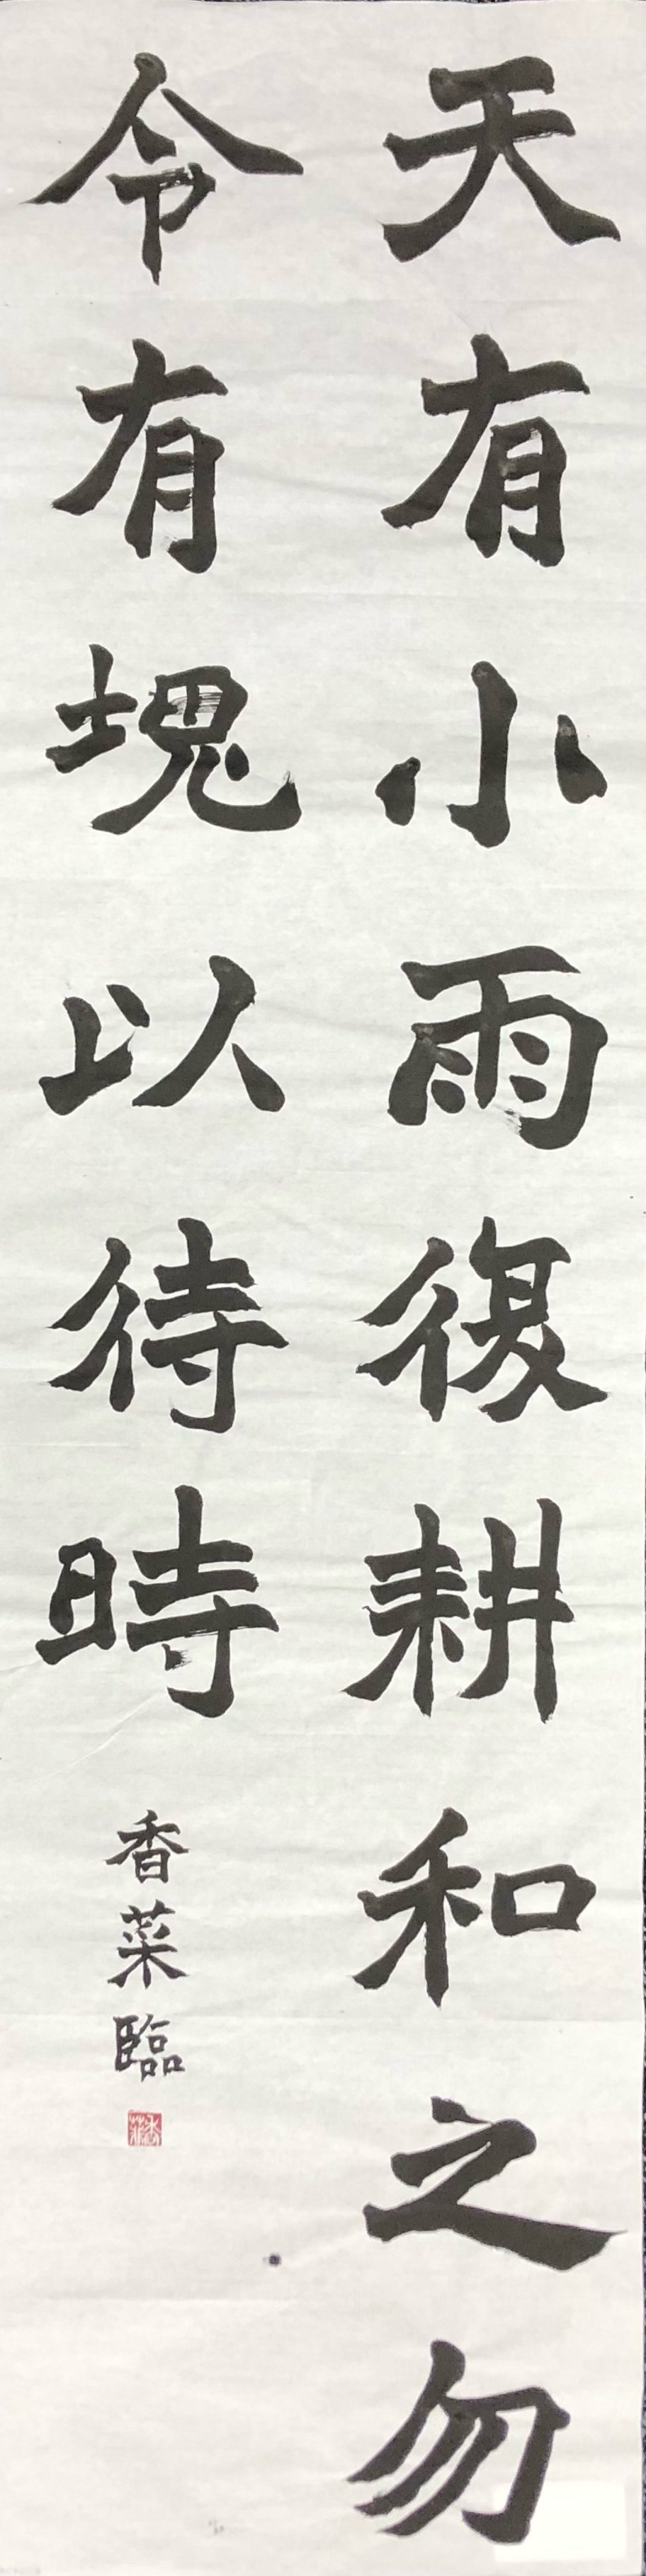 天有小雨復耕和之勿
令有塊以待時
香菜臨
香菜